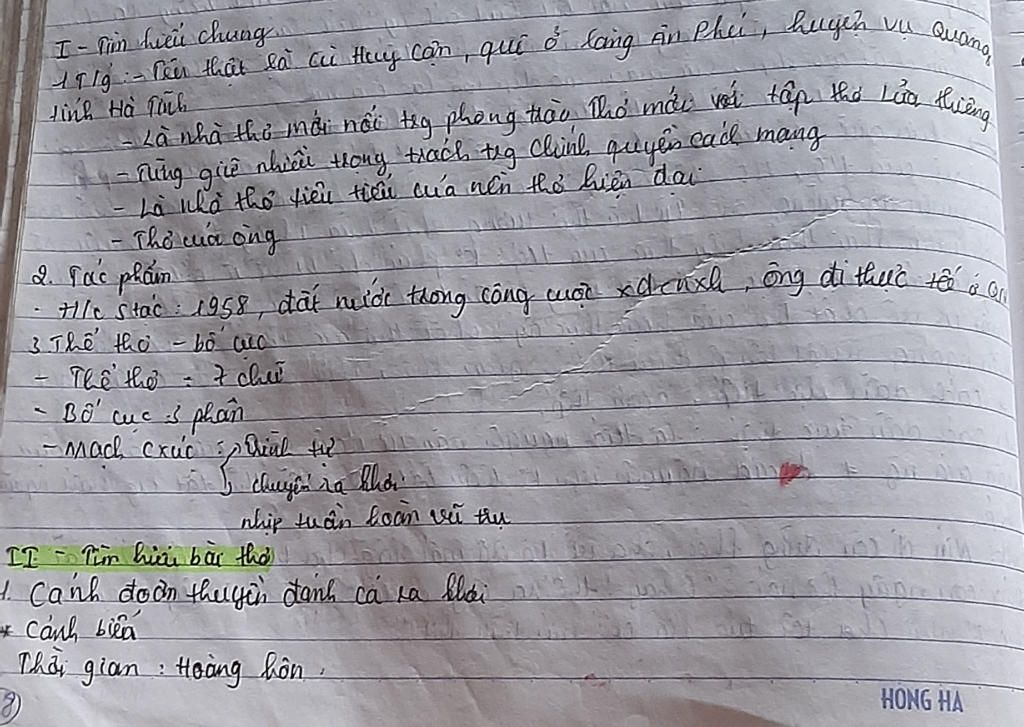 I - Tìm hiểu chung
1 T/g : - Tên thật là Cù Huy Cận, quê ở làng Ân Phú, huyện Vụ Quang,
tỉnh Hà Tĩnh
- Là nhà thơ mới nổi trg phong trào Thơ mới với tập thơ Lửa thiêng
- Từng giữ nhiều trọng trách trg chính quyền cách mạng
- Là nhà thơ tiêu tiểu của nền thơ hiện đại
- Thơ của ông
2. Tác phẩm
- H/c stác : 1958, đất nước trong công cuộc xdcnxh, ông đi thực tế ở
3 Thể thơ - bố cục
- Thể thơ = 7 chữ
- Bố cục = 3 phần
- Mạch cxúc : trình tự
chuyến ra khơi
nhịp tuần hoàn vũ trụ
II - Tìm hiểu bài thơ
1. Cảnh đoàn thuyền đánh cá ra khơi
* Cảnh biển
Thời gian : Hoàng hôn.
8
HONG HA